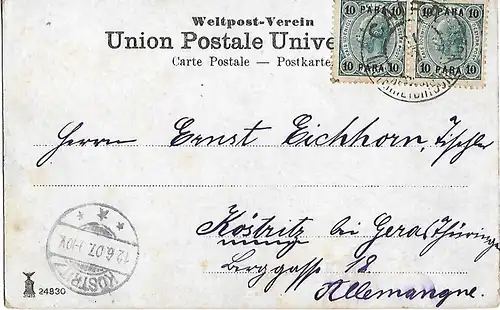 Weltpost-Verein
Union Postale Unive
Carte Postale — Postkarte
10 PARA 10
10 PARA 10
10 PARA 10
10 PARA 10
Herrn Ernst Eichhorn, Tischler
Köstritz bei Gera Thüringe
Berggasse 18
Allemangne.
KÖSTRITZ
12.6.07.
24830